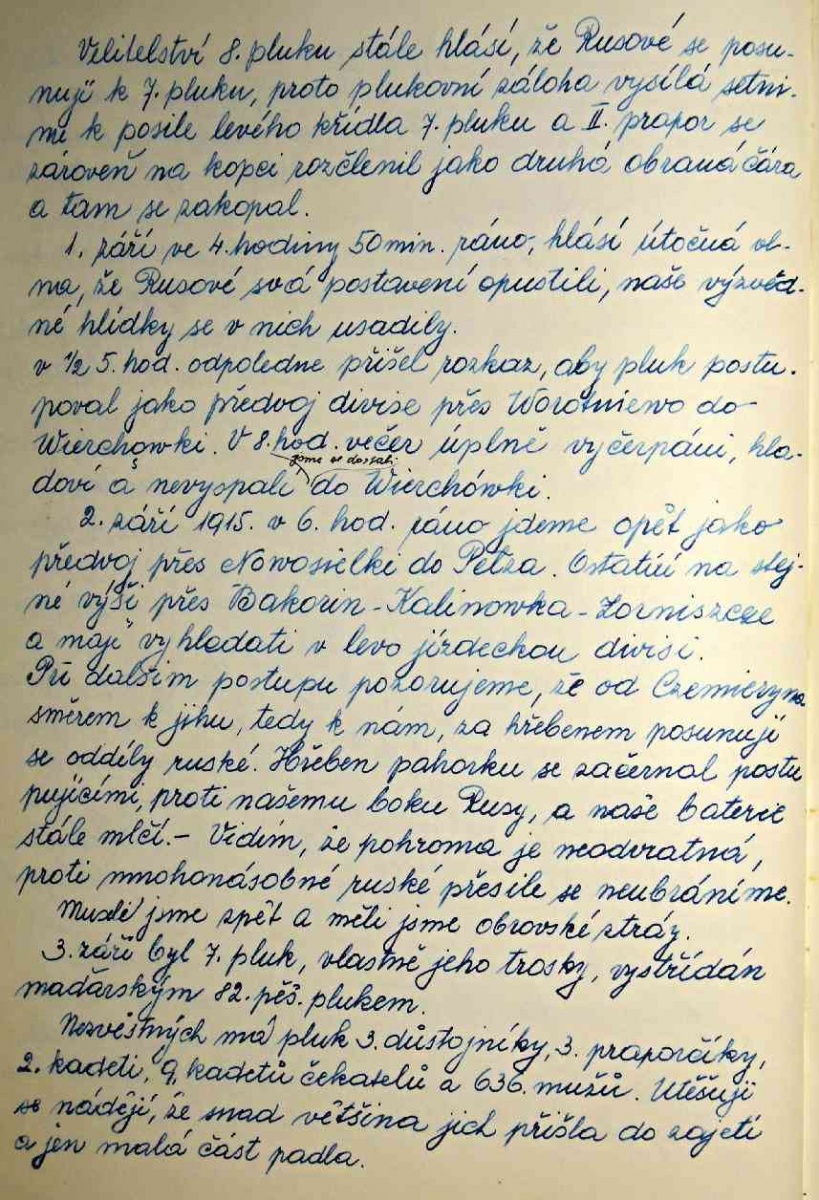 Velitelství 8. pluku stále hlásí, že Rusové se posu-
nují k 7. pluku, proto plukovní záloha vysílá setni-
nu k posile levého křídla 7. pluku a II. prapor se
zároveň na kopci rozčlenil jako druhá obraná čára
a tam se zakopal.
1. září ve 4. hodiny 50 min. ráno, hlásí útočná vl-
na, že Rusové svá postavení opustili, naše výzvěd-
né hlídky se v nich usadily.
v ½ 5. hod. odpoledne přišel rozkaz, aby pluk postu-
poval jako předvoj divise přes Worotniewo do
Wierchowki. V 8. hod. večer úplně vyčerpáni, hla-
jsme se dostali
doví a nevyspali do Wierchówki.
2. září 1915. v 6. hod. ráno jdeme opět jako
předvoj přes Nowosielki do Petza. Ostatní na stej-
né výši přes Bakorin - Kalinowka - Zorniszcze
a mají vyhledati v levo jízdeckou divisi.
Při dalším postupu pozorujeme, že od Czemieryna
směrem k jihu, tedy k nám, za hřebenem posunují
se oddíly ruské. Hřeben pahorku se začernal postu
pujícími, proti našemu boku Rusy, a naše baterie
stále mlčí. - Vidím, že pohroma je neodvratná,
proti mnohonásobné ruské přesile se neubráníme.
Museli jsme zpět a měli jsme obrovské ztráty.
3. září byl 7. pluk, vlastně jeho trosky, vystřídán
maďarským 82. pěš. plukem.
Nezvěstných má pluk 3. důstojníky, 3. praporčíky,
2. kadeti, 9. kadetů čekatelů a 636. mužů. Utěšuji
se nádějí, že snad většina jich přišla do zajetí
a jen malá část padla.